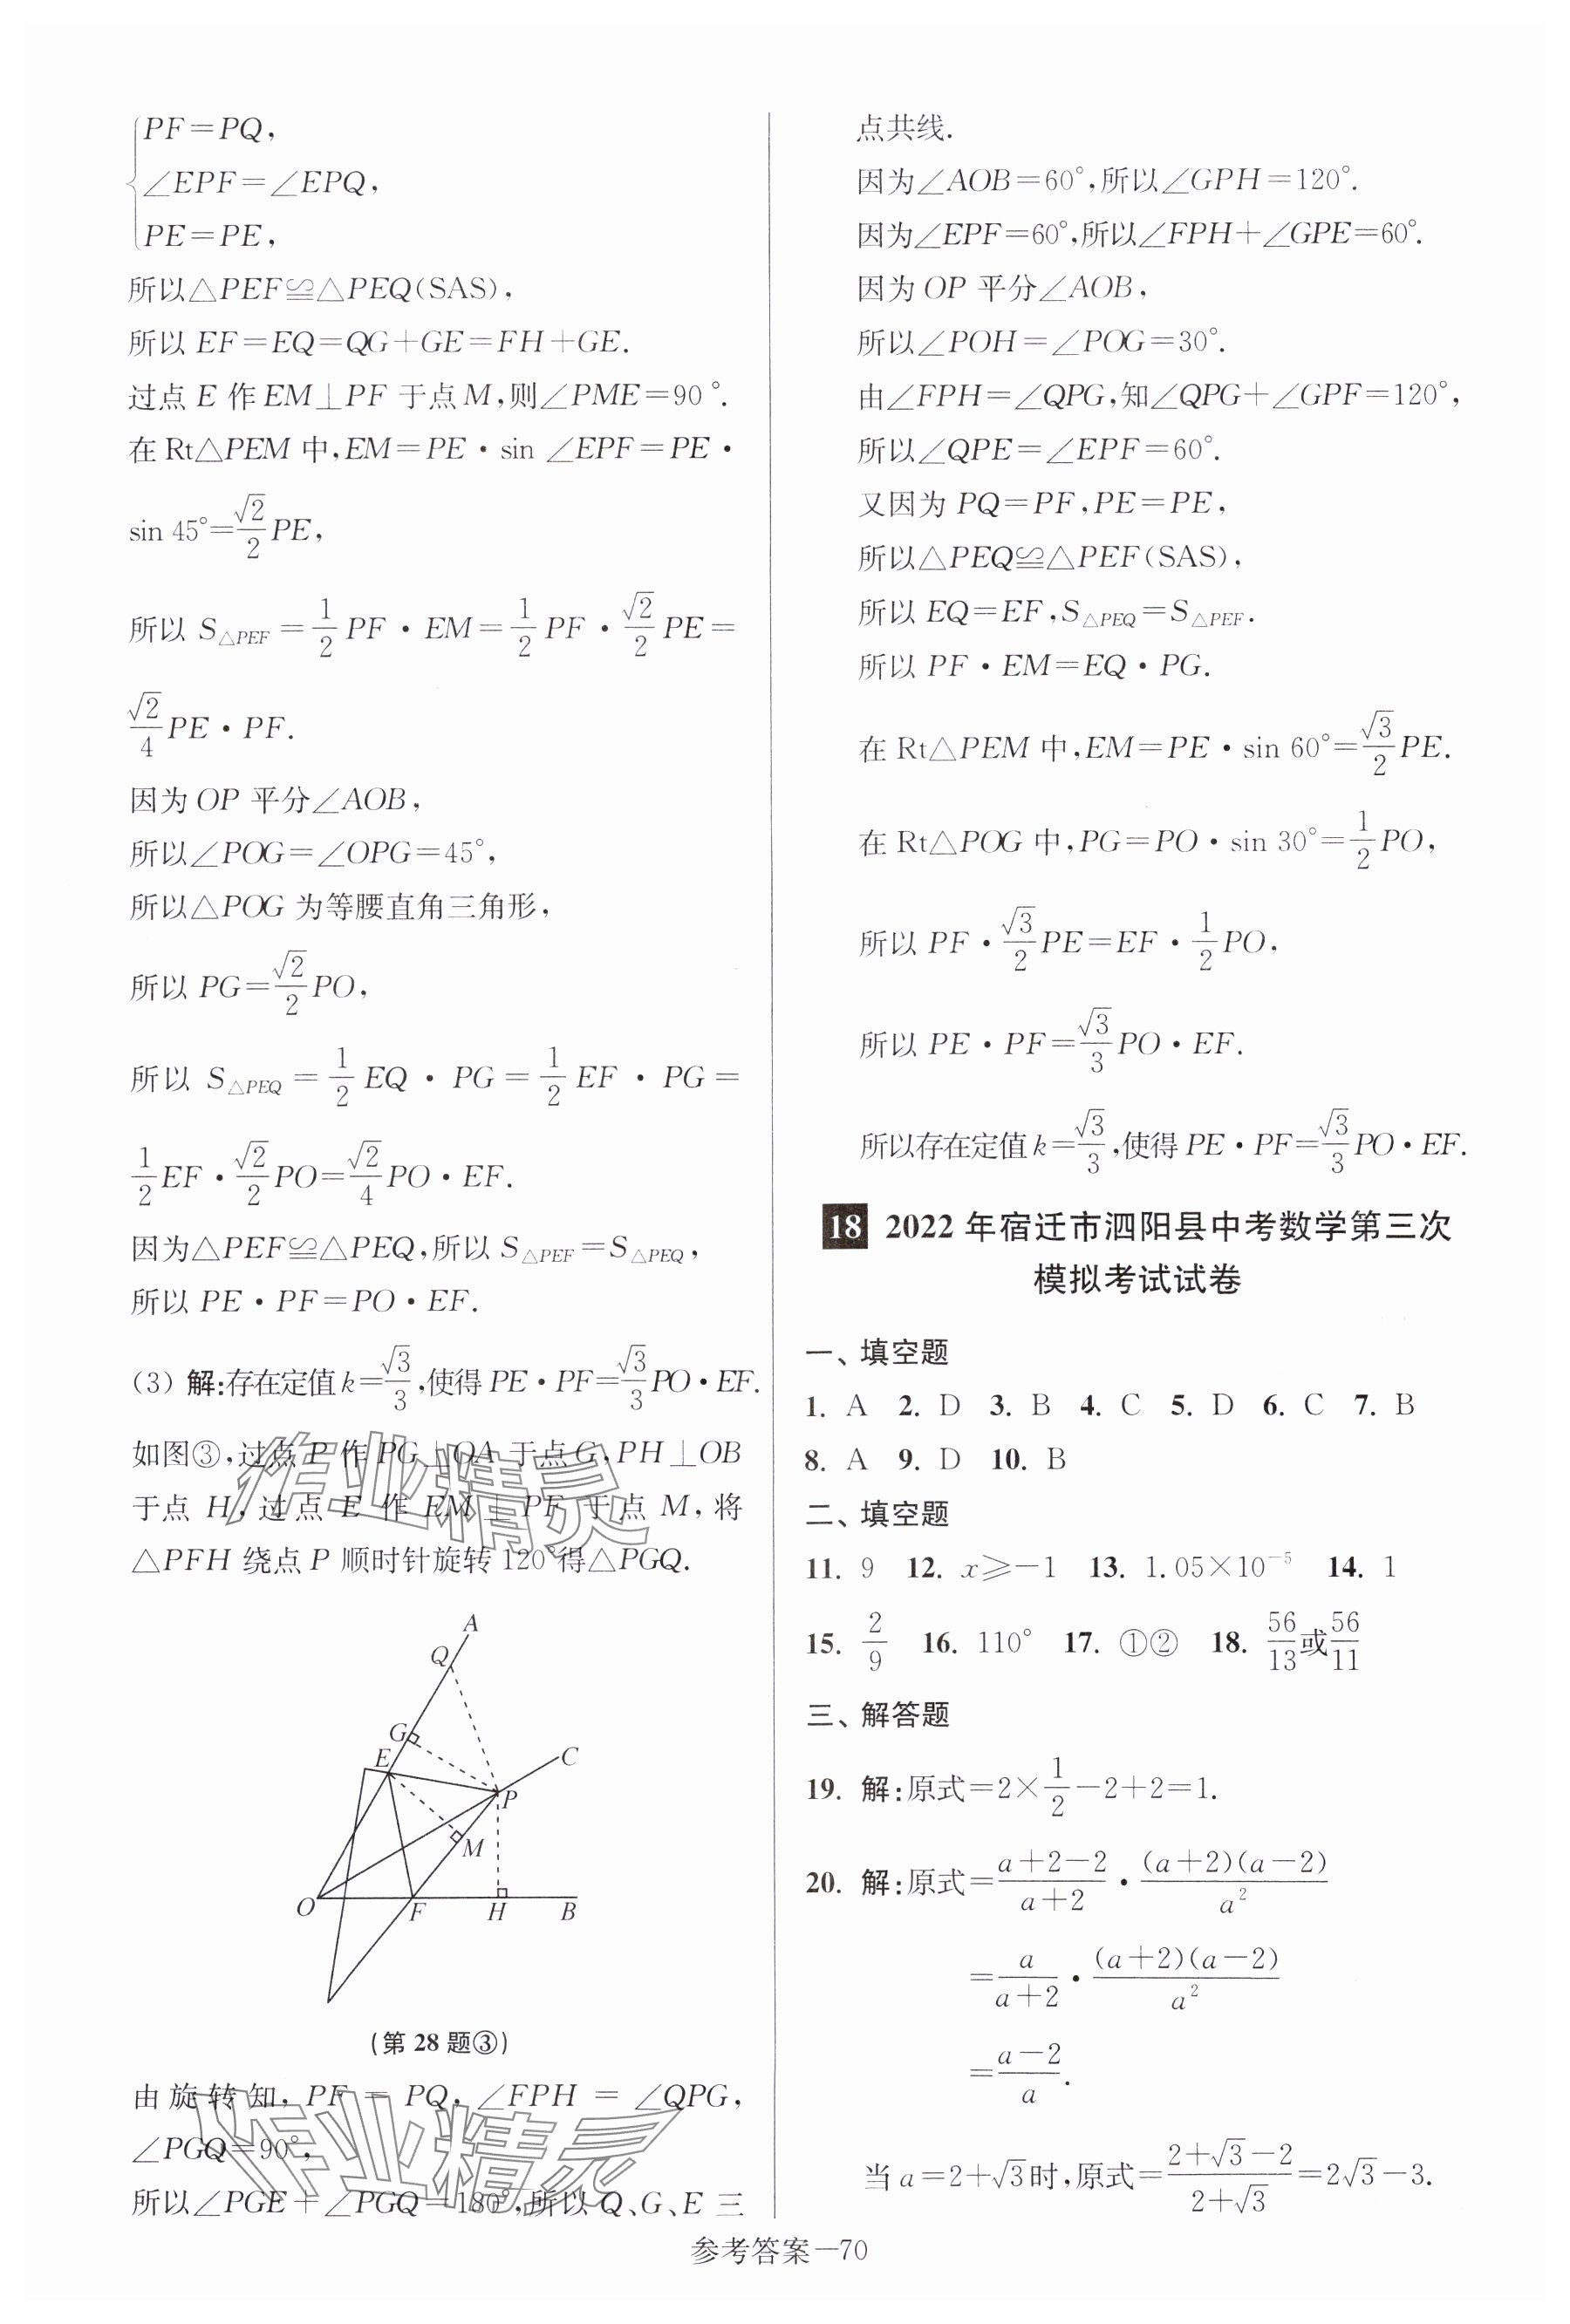 PF=PQ,
∠EPF=∠EPQ,
PE=PE,
所以△PEF≌△PEQ(SAS),
所以 EF=EQ=QG+GE=FH+GE.
过点 E 作 EM⊥PF 于点 M,则∠PME=90°.
在 Rt△PEM 中,EM=PE·sin ∠EPF=PE·
sin 45°=√2/2 PE,
所以 S△PEF=1/2 PF·EM=1/2 PF·√2/2 PE=
√2/4 PE·PF.
因为 OP 平分∠AOB,
所以∠POG=∠OPG=45°,
所以△POG 为等腰直角三角形,
所以 PG=√2/2 PO,
所以 S△PEQ=1/2 EQ·PG=1/2 EF·PG=
1/2 EF·√2/2 PO=√2/4 PO·EF.
因为△PEF≌△PEQ,所以 S△PEF=S△PEQ,
所以 PE·PF=PO·EF.
(3) 解:存在定值 k=√3/3,使得 PE·PF=√3/3 PO·EF.
如图③,过点 P 作 PG⊥OA 于点 G,PH⊥OB
于点 H,过点 E 作 EM⊥PF 于点 M,将
△PFH 绕点 P 顺时针旋转 120°得△PGQ.
作业精灵
A
Q
G
E
C
P
M
O
F
H
B
(第 28 题③)
由旋转知,PF=PQ,∠FPH=∠QPG,
∠PGQ=90°,
所以∠PGE+∠PGQ=180°,所以 Q、G、E 三
作业精灵
点共线.
因为∠AOB=60°,所以∠GPH=120°.
因为∠EPF=60°,所以∠FPH+∠GPE=60°.
因为 OP 平分∠AOB,
所以∠POH=∠POG=30°.
由∠FPH=∠QPG,知∠QPG+∠GPF=120°,
所以∠QPE=∠EPF=60°.
又因为 PQ=PF,PE=PE,
所以△PEQ≌△PEF(SAS),
所以 EQ=EF,S△PEQ=S△PEF.
所以 PF·EM=EQ·PG.
在 Rt△PEM 中,EM=PE·sin 60°=√3/2 PE.
在 Rt△POG 中,PG=PO·sin 30°=1/2 PO,
所以 PF·√3/2 PE=EF·1/2 PO,
所以 PE·PF=√3/3 PO·EF.
所以存在定值 k=√3/3,使得 PE·PF=√3/3 PO·EF.
18 2022 年宿迁市泗阳县中考数学第三次
模拟考试试卷
一、填空题
1. A 2. D 3. B 4. C 5. D 6. C 7. B
8. A 9. D 10. B
二、填空题
11. 9 12. x⩾-1 13. 1.05×10⁻⁵ 14. 1
15. 2/9 16. 110° 17. ①② 18. 56/13或56/11
三、解答题
19. 解:原式=2×1/2-2+2=1.
20. 解:原式=(a+2-2)/(a+2)·(a+2)(a-2)/a²
=a/(a+2)·(a+2)(a-2)/a²
=(a-2)/a.
当 a=2+√3时,原式=(2+√3-2)/(2+√3)=2√3-3.
参考答案—70